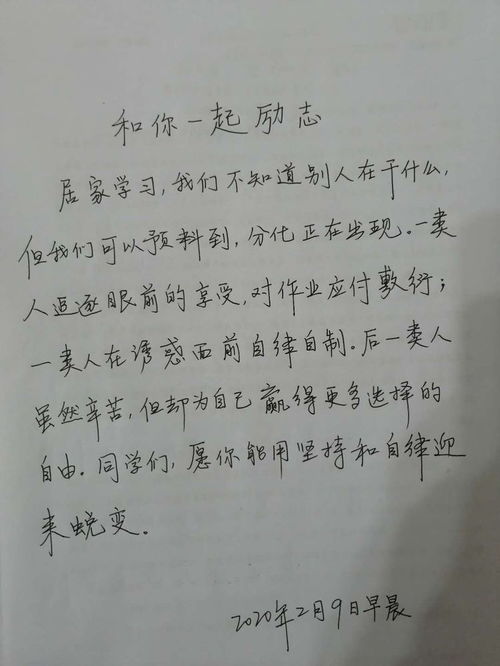 和你一起励志
居家学习，我们不知道别人在干什么，
但我们可以预料到，分化正在出现。一类
人追逐眼前的享受，对作业应付敷衍；
一类人在诱惑面前自律自制。后一类人
虽然辛苦，但却为自己赢得更多选择的
自由。同学们，愿你能用坚持和自律迎
来蜕变。
2020年2月9日早晨